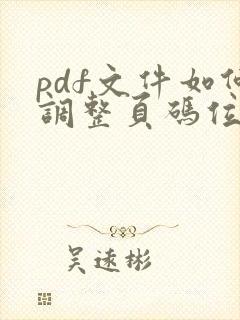 pdf文件如何
調整頁碼位
吴遠彬